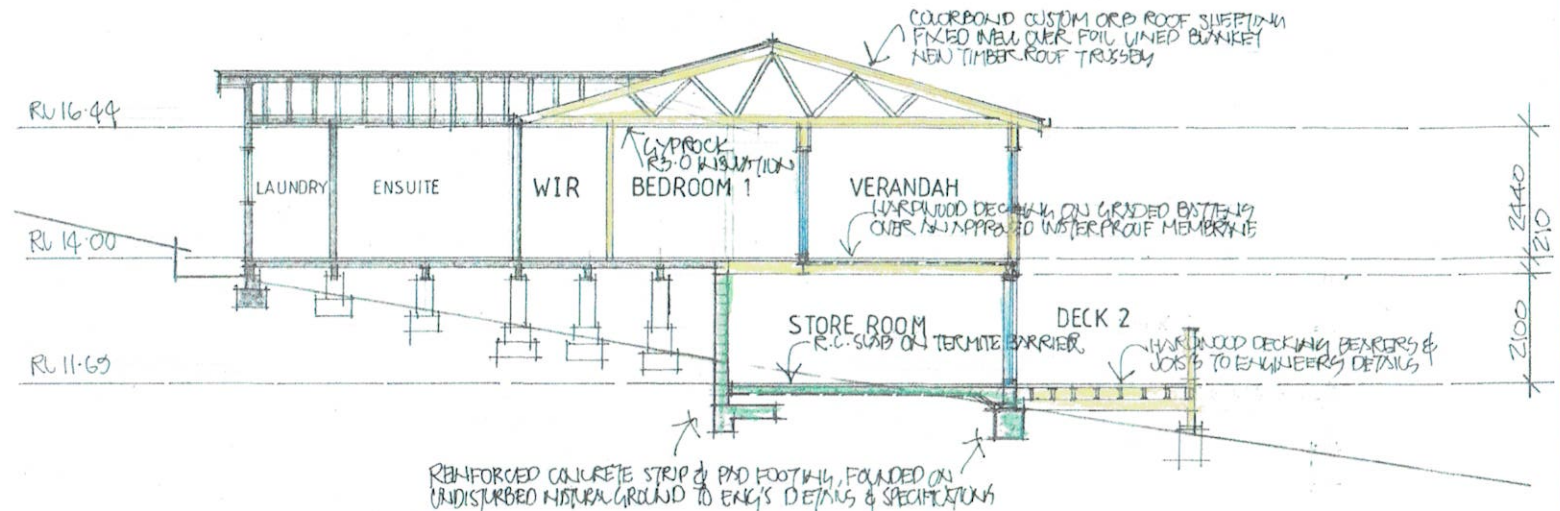 COLORBOND CUSTOM ORB ROOF SHEETING
FIXED NEW OVER FOIL LINED BLANKET
NEW TIMBER ROOF TRUSSES
RL 16.44
GYPROCK
R3.0 INSULATION
LAUNDRY
ENSUITE
WIR
BEDROOM 1
VERANDAH
HARDWOOD DECKING ON GRADED BATTENS
OVER AN APPROVED WATERPROOF MEMBRANE
2440
210
RL 14.00
STORE ROOM
R.C. SLAB ON TERMITE BARRIER
DECK 2
HARDWOOD DECKING BEARERS &
JOISTS TO ENGINEERS DETAILS
2100
RL 11.69
REINFORCED CONCRETE STRIP & PAD FOOTING, FOUNDED ON
UNDISTURBED NATURAL GROUND TO ENG'S DETAILS & SPECIFICATIONS